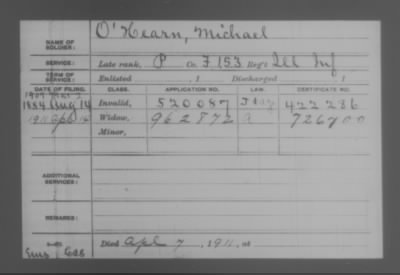 NAME OF SOLDIER: O'Hearn, Michael
SERVICE: Late rank, P Co. F 153 Reg't Ill Inf
TERM OF SERVICE: Enlisted , 1 Discharged , 1
DATE OF FILING. CLASS. APPLICATION NO. LAW. CERTIFICATE NO.
1884 Aug 14 Invalid, 520087 422286
1911 Apl Widow, 962872 726700
Minor,
ADDITIONAL SERVICES:
REMARKS:
Died Apl 7, 1911, at